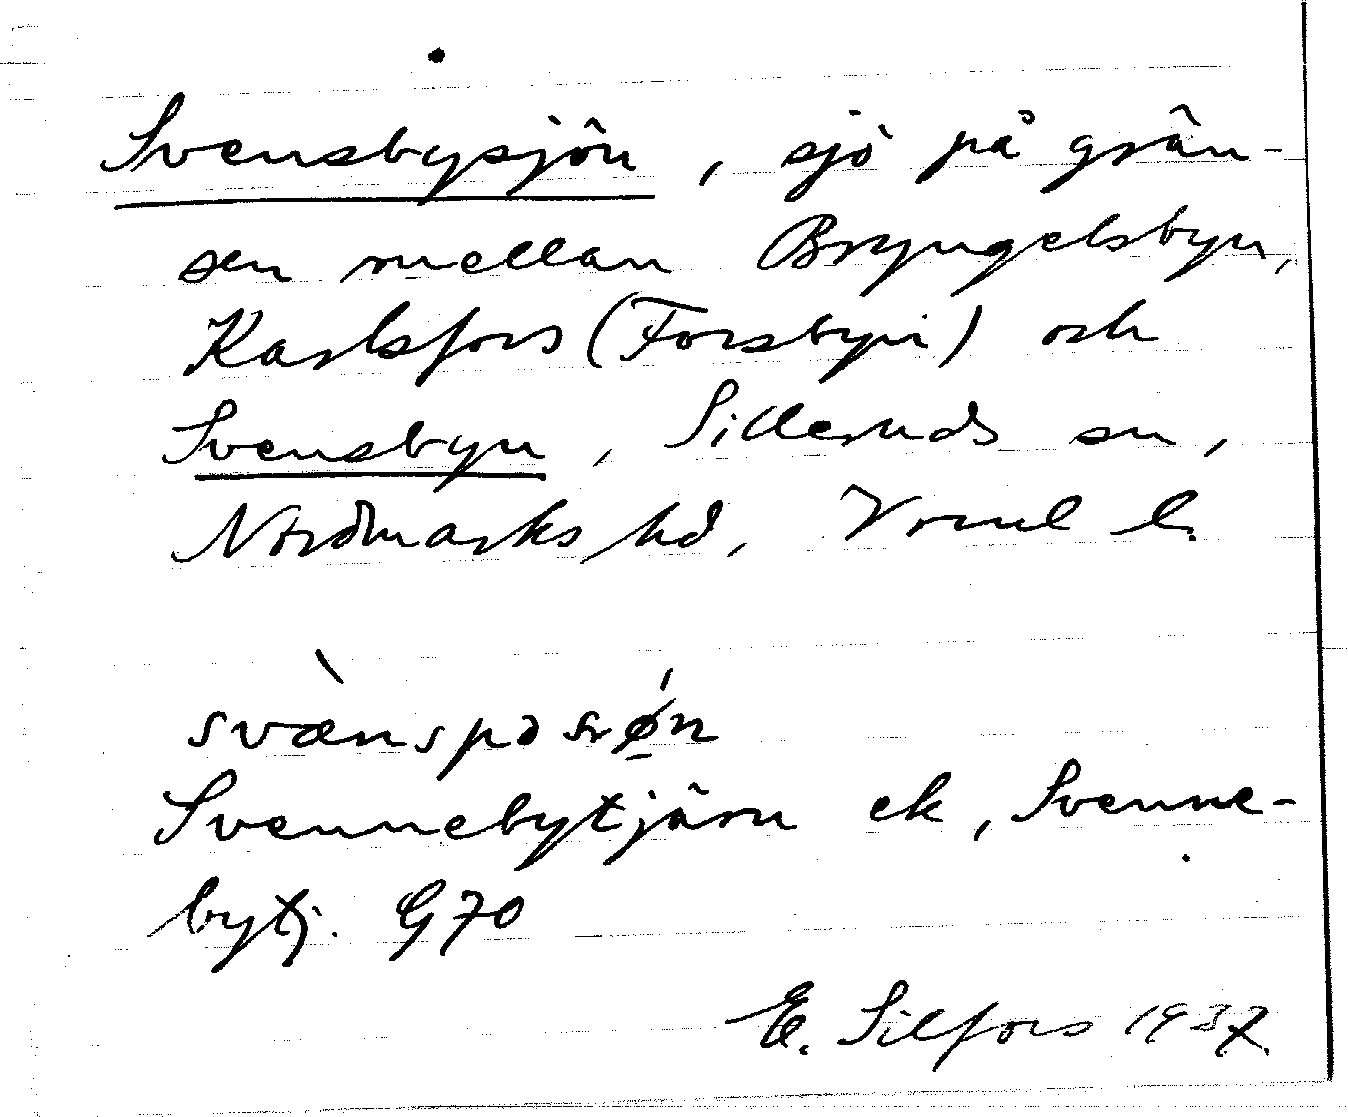 Svensbysjön, sjö på grän-
sen mellan Bryngelsbyn,
Karlsfors (Forsbyn) och
Svensbyn, Silleruds sn,
Nordmarks hd, Vrml l.
svæ̀nspə
Svennebytjärn ek, Svenne-
bytj. G70
E. Silfors 1937.